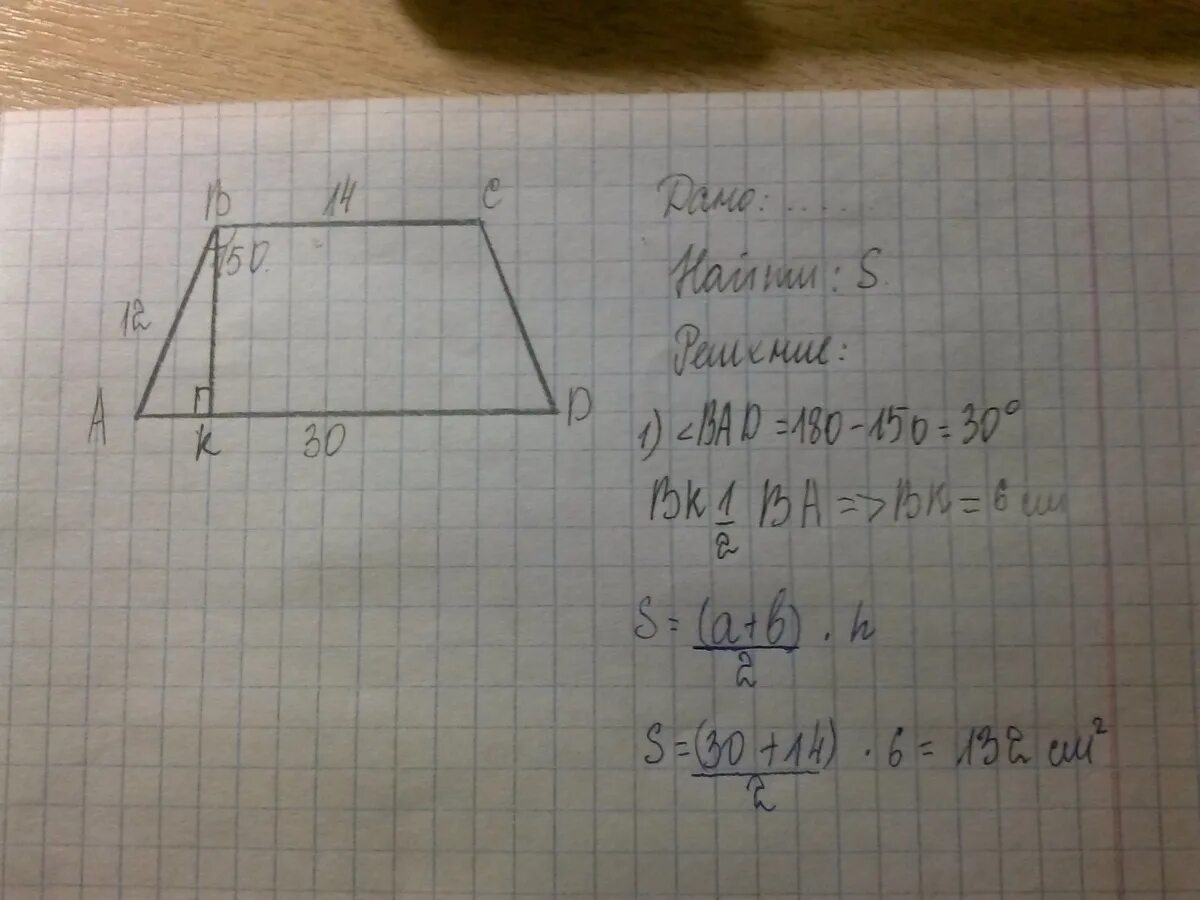 B 14 C
150.
12
A K 30 D
Дано: .....
Найти: S.
Решение:
1) <BAD = 180 - 150 = 30°
BK 1/2 BA => BK = 6 см
S = (a+b)/2 · h
S = (30 + 14)/2 · 6 = 132 см²